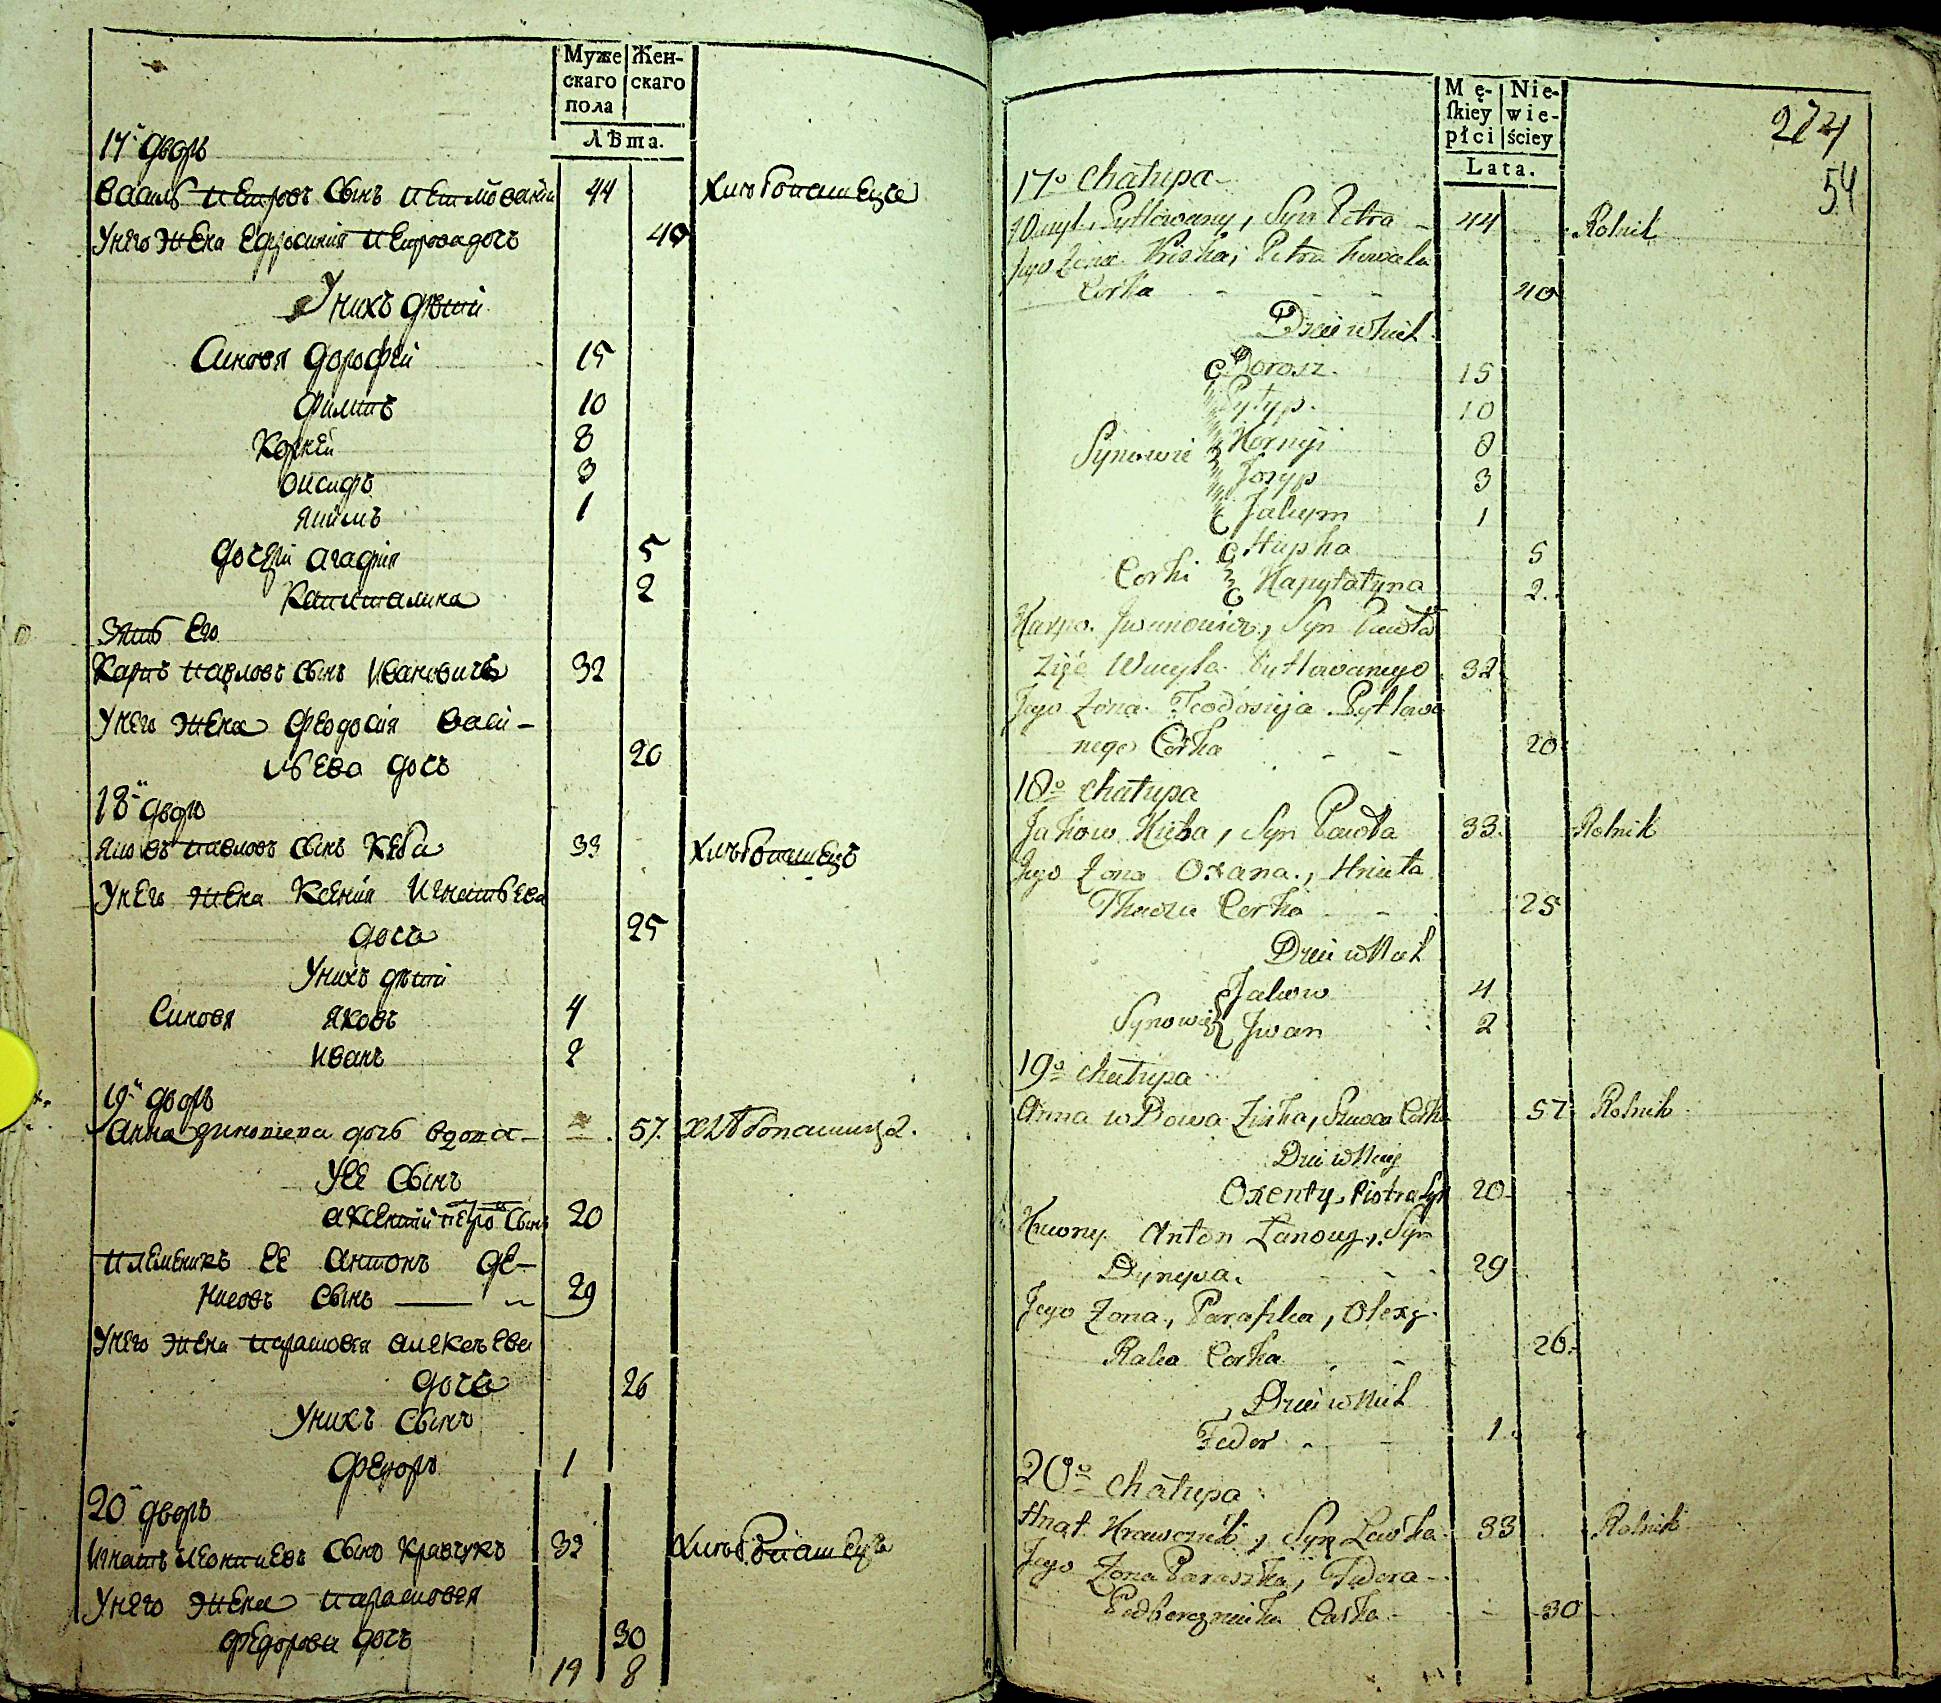 Муже
скаго
пола
Жен-
скаго
Лѣта.
17й дворъ
Василь Петровъ Сынъ 44 Хлѣбопашецъ
Унего Жена Ефросинія Петрова дочь 40
Унихъ дѣтй
Синовя Дорофей 15
Филипъ 10
Корней 8
Осифъ 3
Якимъ 1
дочери Агафия 5
Капиталина 2
Зять Его
Карпъ Павловъ Сынъ Ивановичъ 32
Унего Жена Феодосія Васи-
льева дочь 20
18й дворъ
Яковъ Павловъ Сынъ Кѣба 33 Хлѣбопашецъ
Унего Жена Ксенія Игнатьева
дочь 25
Унихъ дѣтй
Синовя Яковъ 4
Иванъ 2
19й дворъ
Анна дочь вдова 57. хлѣбопашица.
Уее Сынъ
Аксентий Петровъ Сынъ 20
Племеникъ Ее Антонъ Де-
нисовъ Сынъ 29
Унего Жена Парасковя Алексѣева
дочь 26
Унихъ Сынъ
Федоръ 1
20й дворъ
Игнатъ Леонтиевъ Сынъ Кравчукъ 32 Хлѣбопашецъ
Унего Жена Парасковея
Федорова дочь 30
19 8
Mę-
skiey
płci
Nie-
wie-
ściey
Lata.
274
54
17o Chałupa
Wasyl, Pytlowany, Syn Petra 44 Rolnik
Jego Żona Priska, Petra Kowala
Corka 40
Dzieci w Nich
Dorosz. 15
Pylyp. 10
Synowie Kornyi 8
Josyp 3
Jakym 1
Hapka 5
Corki Kapytalyna 2.
Karpo. Iwanowicz, Syn Pawła
Zięć Wasyla Pytlowanego 32
Jego Żona Teodosija Pytlowa
nego Corka 20
18o Chałupa
Jakow Kieba, Syn Pawła 33. Rolnik
Jego Żona Oxana., Hnata
Tkacza Corka 25
Dzieci w Nich
Jakow 4
Synowie Iwan 2
19o Chałupa
Anna wdowa Corka 57 Rolnik
Dzieci w Niey
Oxenty Piotra Syn 20
Krewny Anton Łanowy, Syn
Dynysa. 29
Jego Żona, Paraska, Olexy
Raka Corka 26.
Dzieci w Nich
Fedor 1.
20o Chałupa
Hnat Krawczuk, Syn Lewka 33 Rolnik
Jego Żona Paraszka, Fedora
Corka 30